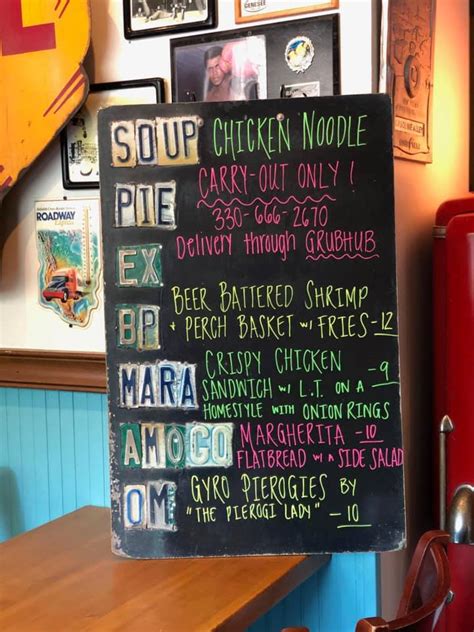 SOUP CHICKEN NOODLE
PIE CARRY-OUT ONLY!
330-666-2670
Delivery through GRUBHUB
EX
BEER BATTERED SHRIMP
BP + PERCH BASKET w/ FRIES-12
CRISPY CHICKEN -9
MARA SANDWICH w/ L.T. ON A
HOMESTYLE WITH ONION RINGS
AMOCO MARGHERITA -10
FLATBREAD w/ A SIDE SALAD
OM GYRO PIEROGIES BY
"THE PIEROGI LADY" -10
ROADWAY